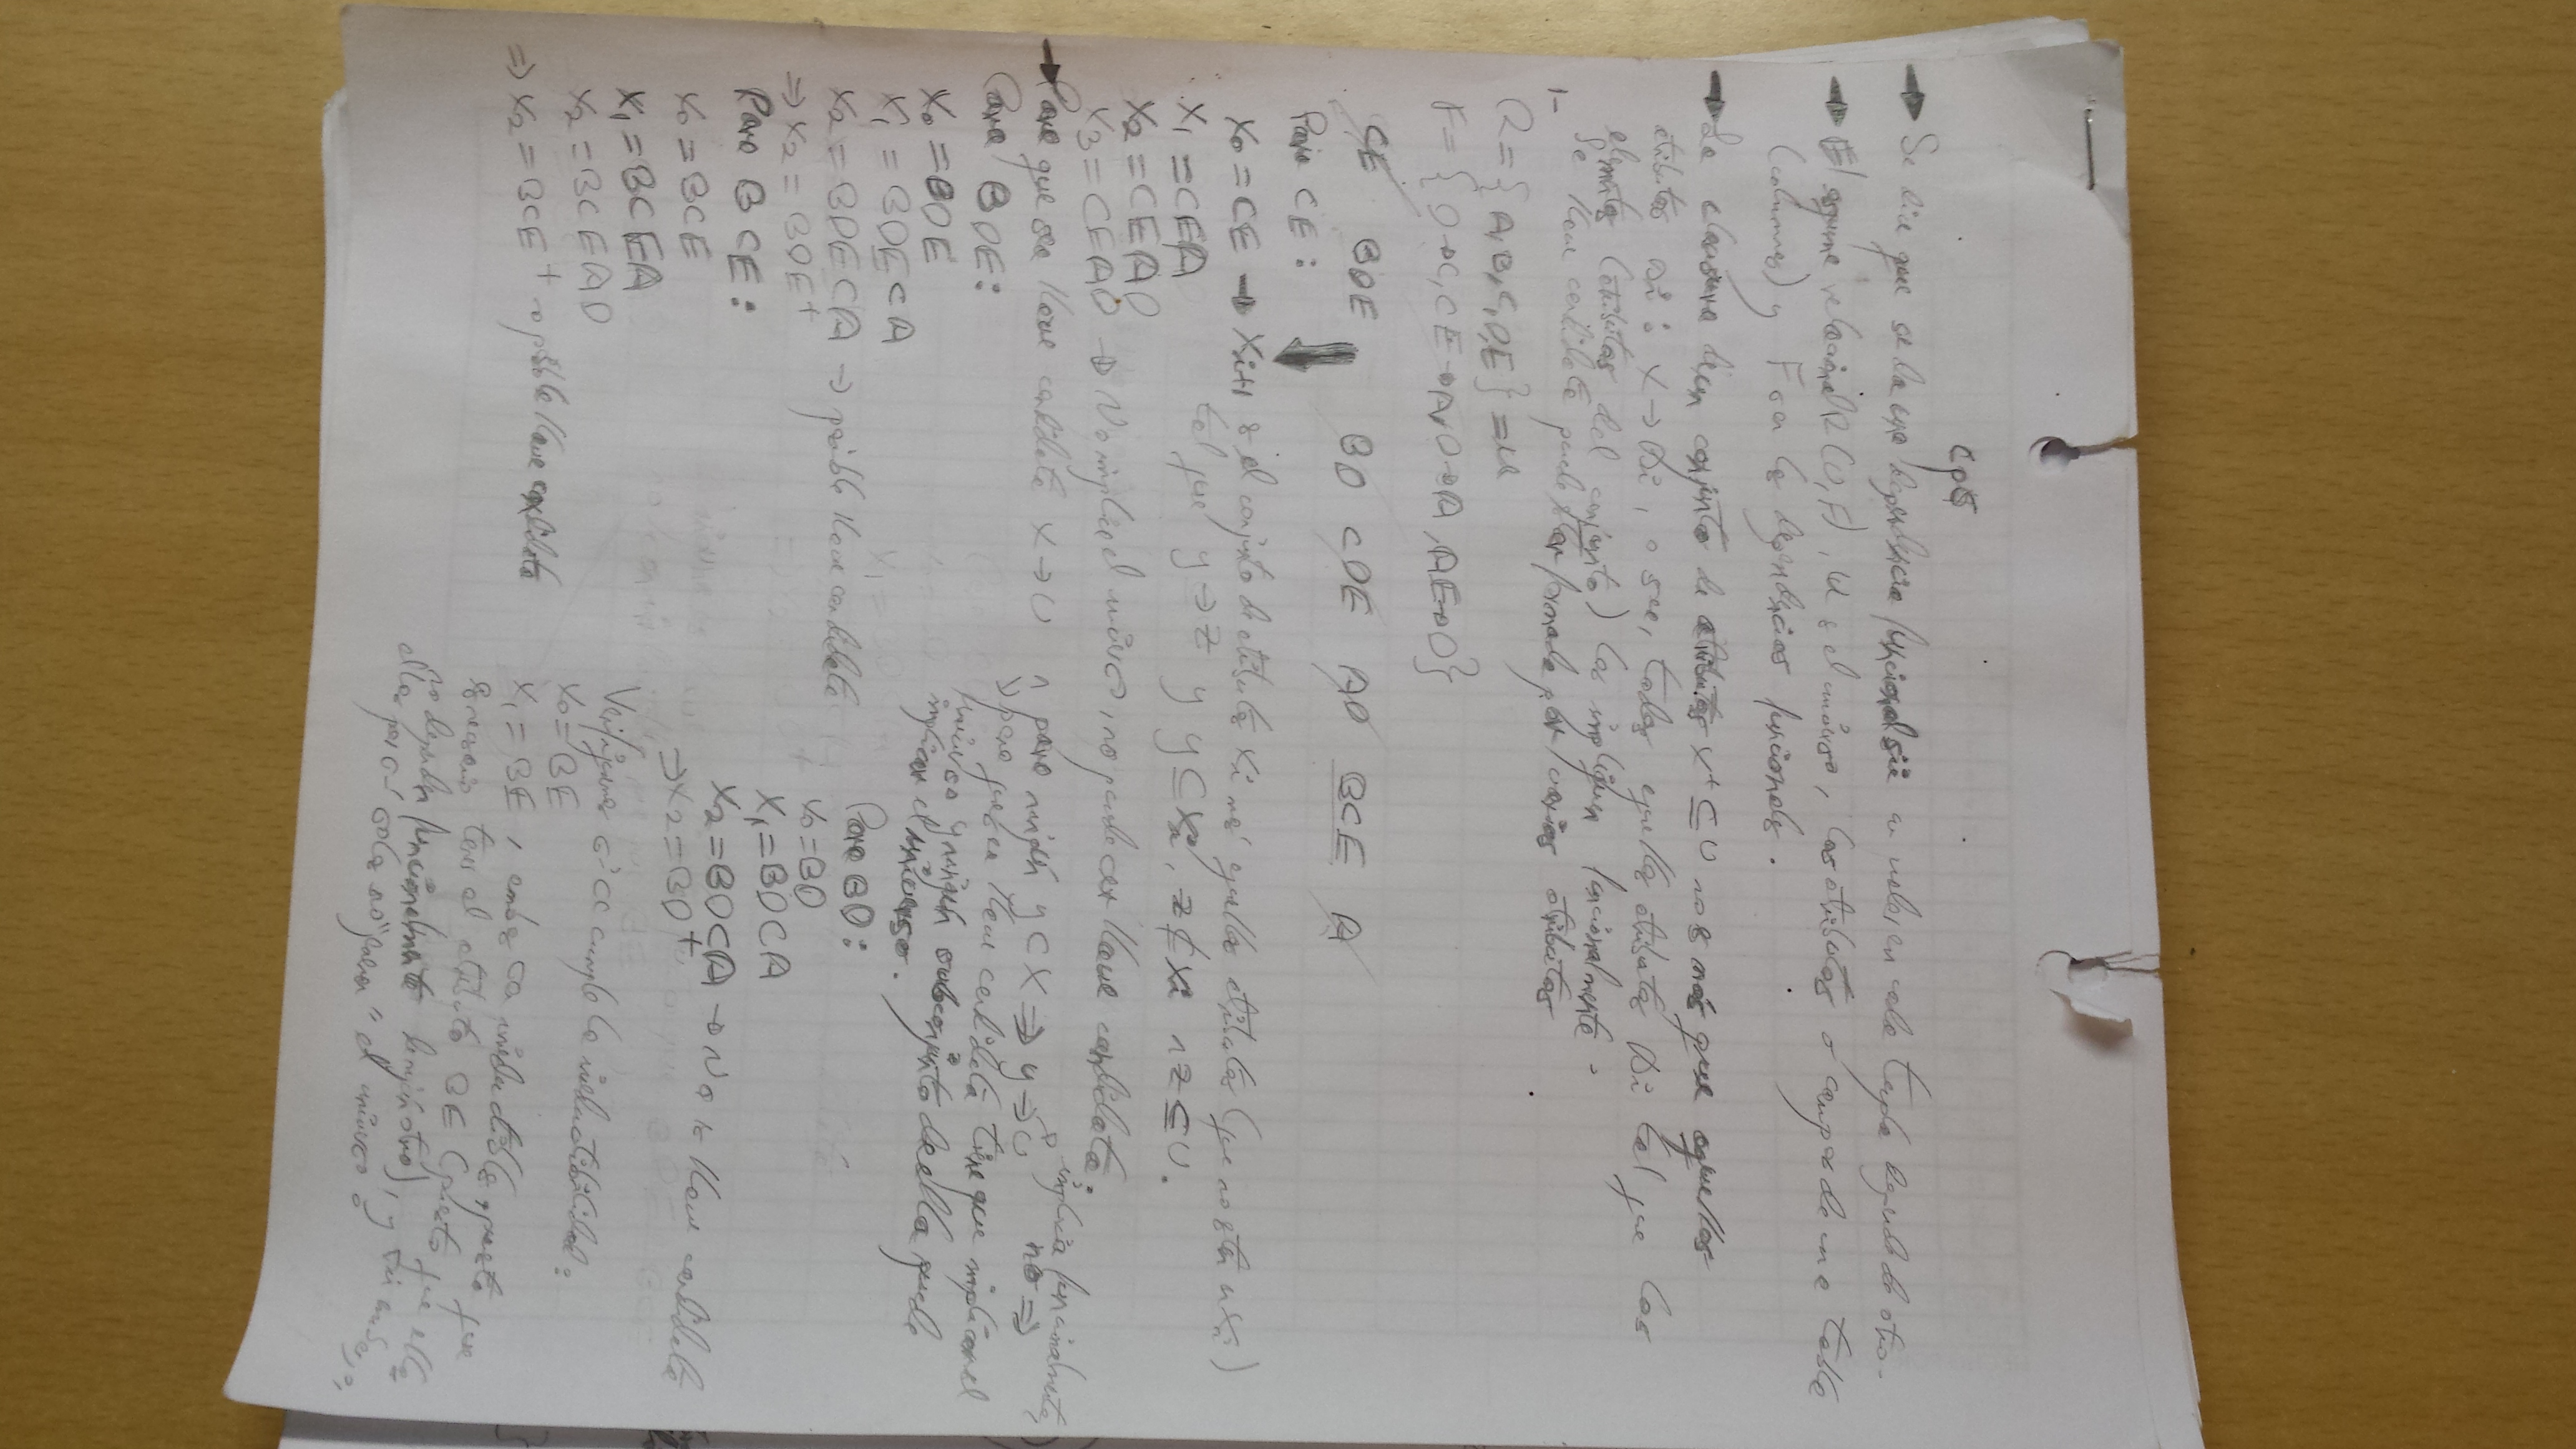 CP5
→ Se dice que se da una dependencia funcional sii un valor en cada tupla depende de otro.
→ El esquema relacional R(U,F), U es el universo, los atributos o campos de una tabla
(columnas) y F son las dependencias funcionales.
→ La clausura de un conjunto de atributos X⁺ ⊆ U no es más que aquellos
atributos Ai : X → Ai, o sea, todos aquellos atributos Ai tal que los
elementos (atributos del conjunto) los impliquen funcionalmente.
La llave candidata puede estar formada por varios atributos
1-
R = {A,B,C,D,E} = U
F = {D→C, CE→A, D→A, AE→D}
CE BDE BD CDE AD BCE A
Para CE:
X0 = CE → Xi+1 es el conjunto de atributos Xi más aquellos atributos (que no estén en Xi)
tal que y→z y y⊆Xi, z⊄Xi ∧ z⊆U.
X1 = CEA
X2 = CEAD
X3 = CEAD → No implica el universo, no puede ser llave candidata.
→ Para que sea llave candidata X→U ∧ para ningún y⊂X ⇒ y→U
implica funcionalmente, no ⇒
para que sea llave candidata tiene que implicar el
universo y ningún subconjunto de ella puede
implicar el universo.
Para BDE:
X0 = BDE
X1 = BDECA
X2 = BDECA → posible llave candidata
⇒ X2 = BDE⁺
Para BCE:
X0 = BCE
X1 = BCEA
X2 = BCEAD
⇒ X2 = BCE⁺ → posible llave candidata
Para BD:
X0 = BD
X1 = BDCA
X2 = BDCA → No es llave candidata
⇒ X2 = BD⁺
Verifiquemos si se cumple la irreductibilidad:
X0 = BE
X1 = BE, ambas son irreductibles, puesto que
es necesario tener el atributo BE (puesto que ellos
no dependen funcionalmente de ningún otro), y sin embargo,
ellos por sí solos no "generan" el universo